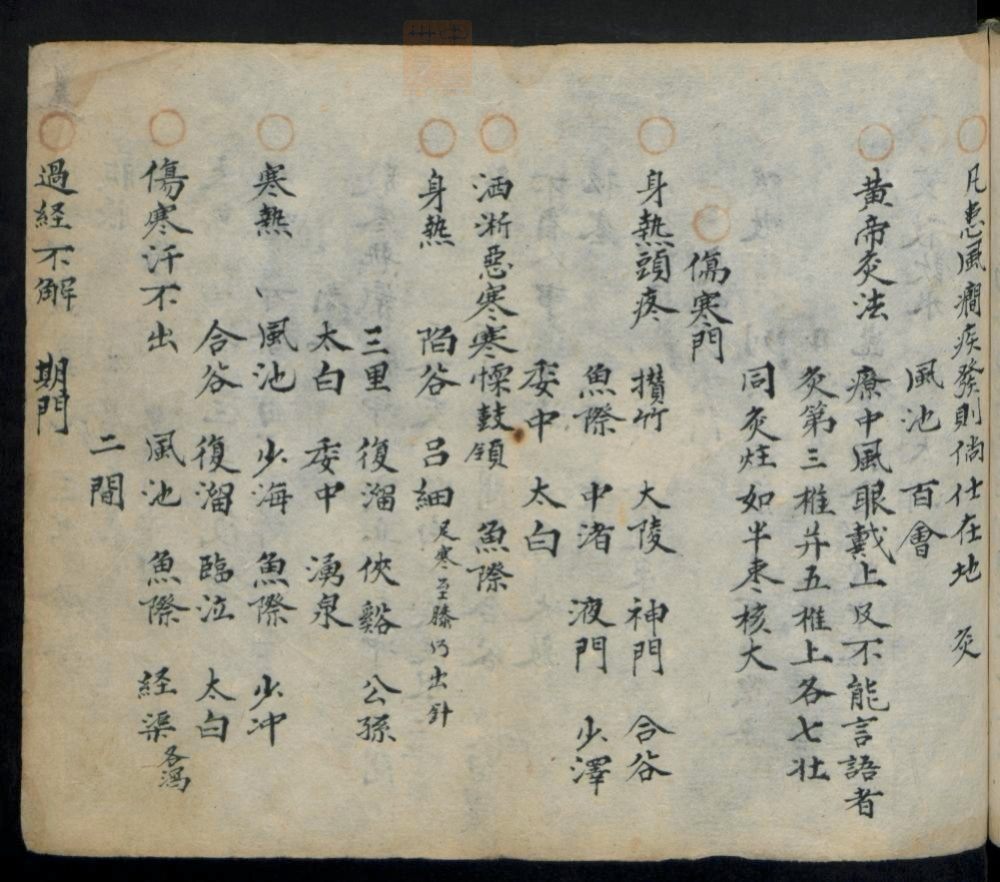 凡患風癇疾發則倘仕在地　灸
風池　百會
黄帝灸法　療中風眼戴上及不能言語者
灸第三椎并五椎上各七壮
同灸炷如半枣核大
傷寒門
身熱頭疼　攅竹　大陵　神門　合谷
魚際　中渚　液門　少澤
委中　太白
洒淅惡寒寒慄鼓頷　魚際
身熱　陷谷　吕細足寒至膝乃出針
三里　復溜　俠谿　公孫
太白　委中　湧泉
寒熱　風池　少海　魚際　少冲
合谷　復溜　臨泣　太白
傷寒汗不出　風池　魚際　経渠各瀉
二間
過経不解　期門